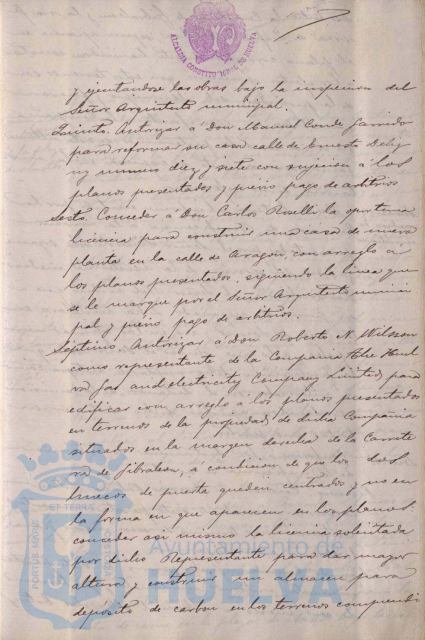 ALCALDIA CONSTITUCIONAL DE HUELVA
y ejecutandose las obras bajo la inspeccion del
Señor Arquitecto municipal.
Quinto. Autorizar á Don Manuel Conde Garrido
para reformar su casa calle de Ernesto Delig
ny numero diez y siete con sujecion á los
planos presentados y previo pago de arbitrios
Sesto. Conceder á Don Carlos Roselli la oportuna
licencia para construir una casa de nueva
planta en la calle de Aragon, con arreglo á
los planos presentados, siguiendo la linea que
se le marque por el Señor Arquitecto munici
pal y previo pago de arbitrios.
Septimo. Autorizar á Don Roberto N. Wilsson
como representante de la Compañia The Huel
va Gas and electricity Company Limited, para
edificar con arreglo á los planos presentados
en terrenos de la propiedad de dicha Compañia
situados en la margen derecha de la Carrete
ra de Gibraleon, á condicion de que los dos
huecos de puerta queden centrados y no en
la forma en que aparecen en los planos:
conceder asi mismo la licencia solicitada
por dicho Representante para dar mayor
altura y construir un almacen para
deposito de carbon en los terrenos comprendi
PORTUS MARIS
ET TERRÆ
Ayuntamiento de
HUELVA